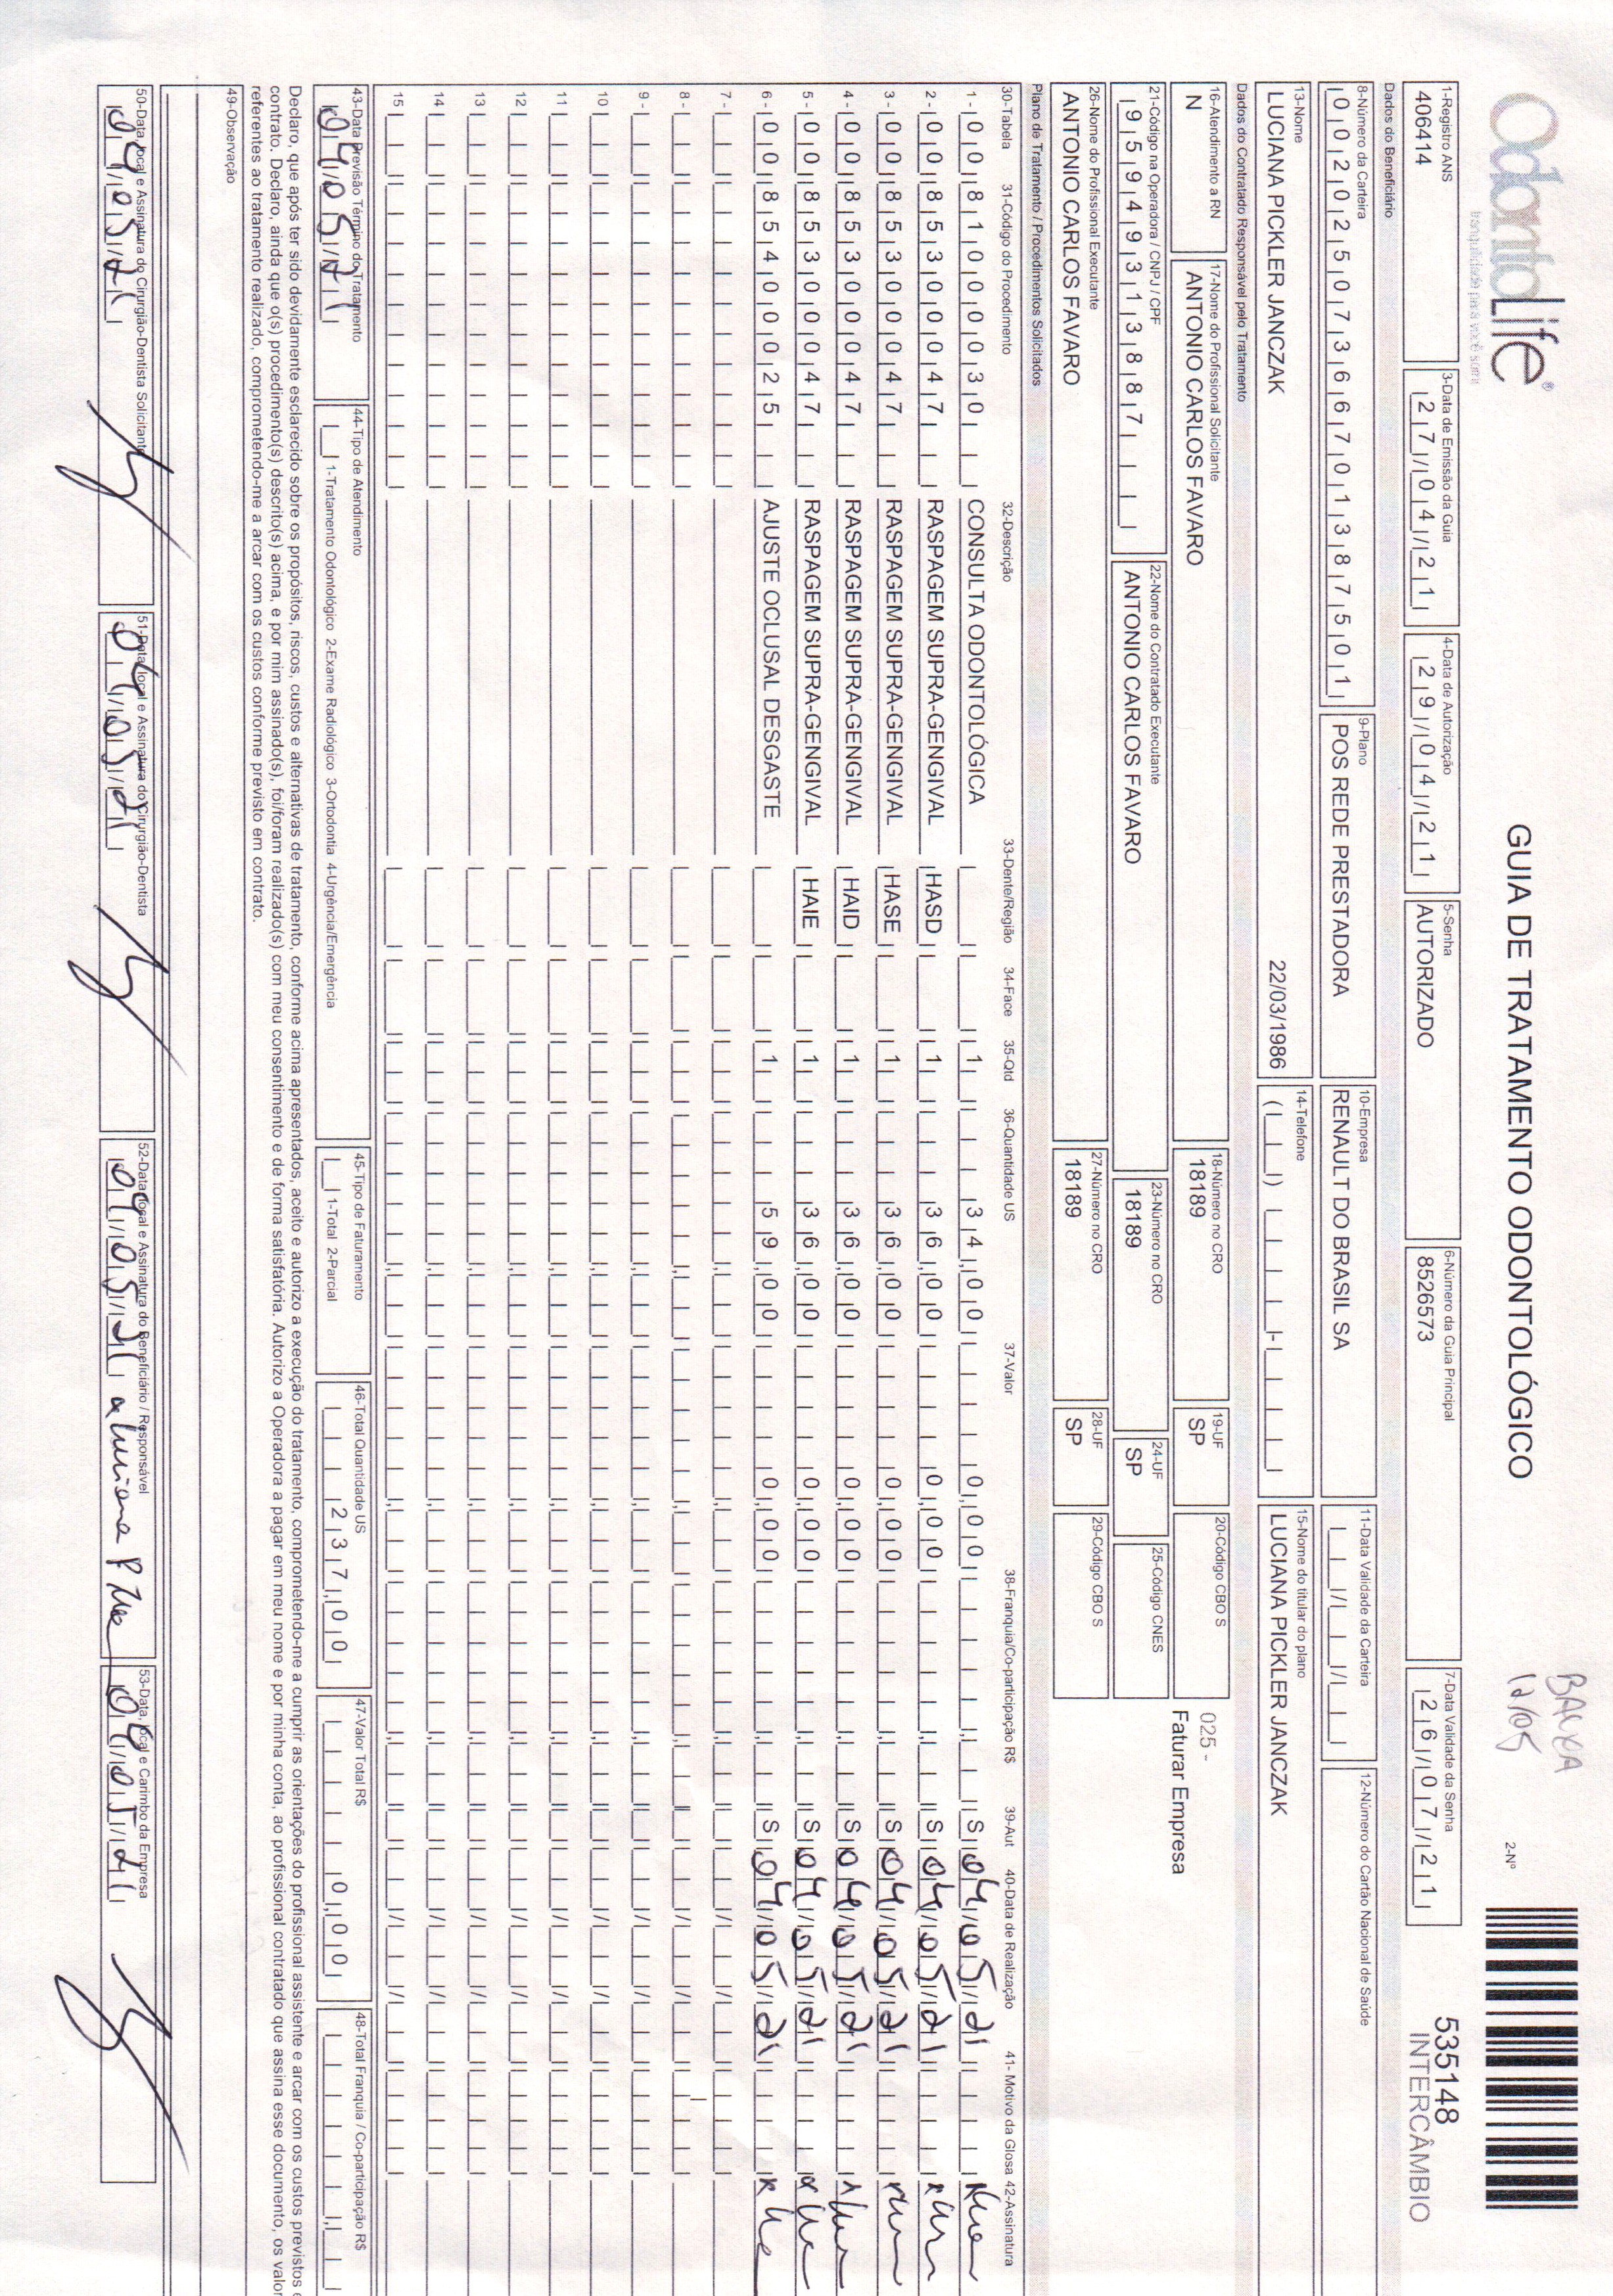 OdontoLife®
tranquilidade para você sorrir
GUIA DE TRATAMENTO ODONTOLÓGICO
BAIXA
12/05
2-Nº
535148
INTERCÂMBIO
1-Registro ANS
406414
3-Data de Emissão da Guia
27/04/21
4-Data de Autorização
29/04/21
5-Senha
AUTORIZADO
6-Número da Guia Principal
8526573
7-Data Validade da Senha
26/07/21
Dados do Beneficiário
8-Número da Carteira
00202507366701387501
9-Plano
POS REDE PRESTADORA
10-Empresa
RENAULT DO BRASIL SA
11-Data Validade da Carteira
12-Número do Cartão Nacional de Saúde
13-Nome
LUCIANA PICKLER JANCZAK 22/03/1986
14-Telefone
15-Nome do titular do plano
LUCIANA PICKLER JANCZAK
Dados do Contratado Responsável pelo Tratamento
16-Atendimento a RN
N
17-Nome do Profissional Solicitante
ANTONIO CARLOS FAVARO
18-Número no CRO
18189
19-UF
SP
20-Código CBO S
025 -
Faturar Empresa
21-Código na Operadora / CNPJ / CPF
95949313887
22-Nome do Contratado Executante
ANTONIO CARLOS FAVARO
23-Número no CRO
18189
24-UF
SP
25-Código CNES
26-Nome do Profissional Executante
ANTONIO CARLOS FAVARO
27-Número no CRO
18189
28-UF
SP
29-Código CBO S
Plano de Tratamento / Procedimentos Solicitados
30-Tabela 31-Código do Procedimento 32-Descrição 33-Dente/Região 34-Face 35-Qtd 36-Quantidade US 37-Valor 38-Franquia/Co-participação R$ 39-Aut 40-Data de Realização 41- Motivo da Glosa 42-Assinatura
1 - 00 81000030 CONSULTA ODONTOLÓGICA 1 34,00 0,00 S 04/05/21
2 - 00 85300047 RASPAGEM SUPRA-GENGIVAL HASD 1 36,00 0,00 S 04/05/21
3 - 00 85300047 RASPAGEM SUPRA-GENGIVAL HASE 1 36,00 0,00 S 04/05/21
4 - 00 85300047 RASPAGEM SUPRA-GENGIVAL HAID 1 36,00 0,00 S 04/05/21
5 - 00 85300047 RASPAGEM SUPRA-GENGIVAL HAIE 1 36,00 0,00 S 04/05/21
6 - 00 85400025 AJUSTE OCLUSAL DESGASTE 1 59,00 0,00 S 04/05/21
7 -
8 -
9 -
10
11
12
13
14
15
43-Data Previsão Término do Tratamento
04/05/21
44-Tipo de Atendimento
1-Tratamento Odontológico 2-Exame Radiológico 3-Ortodontia 4-Urgência/Emergência
45-Tipo de Faturamento
1-Total 2-Parcial
46-Total Quantidade US
237,00
47-Valor Total R$
0,00
48-Total Franquia / Co-participação R$
Declaro, que após ter sido devidamente esclarecido sobre os propósitos, riscos, custos e alternativas de tratamento, conforme acima apresentados, aceito e autorizo a execução do tratamento, comprometendo-me a cumprir as orientações do profissional assistente e arcar com os custos previstos
contrato. Declaro, ainda que o(s) procedimento(s) descrito(s) acima, e por mim assinado(s), foi/foram realizado(s) com meu consentimento e de forma satisfatória. Autorizo a Operadora a pagar em meu nome e por minha conta, ao profissional contratado que assina esse documento, os
referentes ao tratamento realizado, comprometendo-me a arcar com os custos conforme previsto em contrato.
49-Observação
50-Data, local e Assinatura do Cirurgião-Dentista Solicitante
04/05/21
51-Data, local e Assinatura do Cirurgião-Dentista
04/05/21
52-Data, local e Assinatura do Beneficiário / Responsável
04/05/21
53-Data, local e Carimbo da Empresa
04/05/21